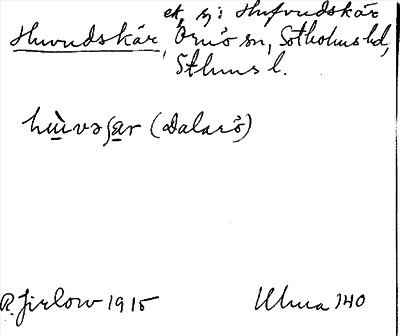 ek, sj: Hufvudskär
Huvudskär, Ornö sn, Sotholms hd,
Sthms l.
hùvəʃar (Dalarö)
R. Jirlow 1915 Ulma 140